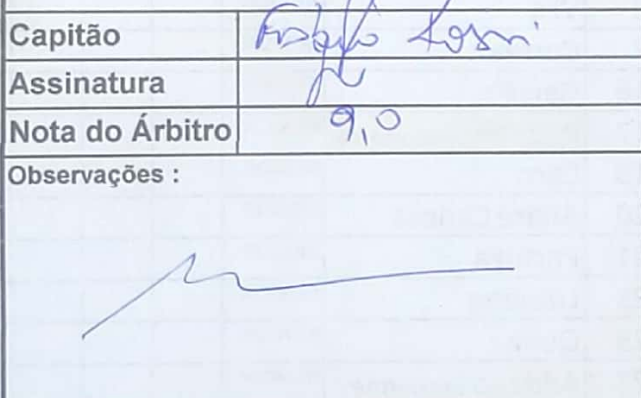 Capitão Rossi
Assinatura
Nota do Árbitro 9,0
Observações :